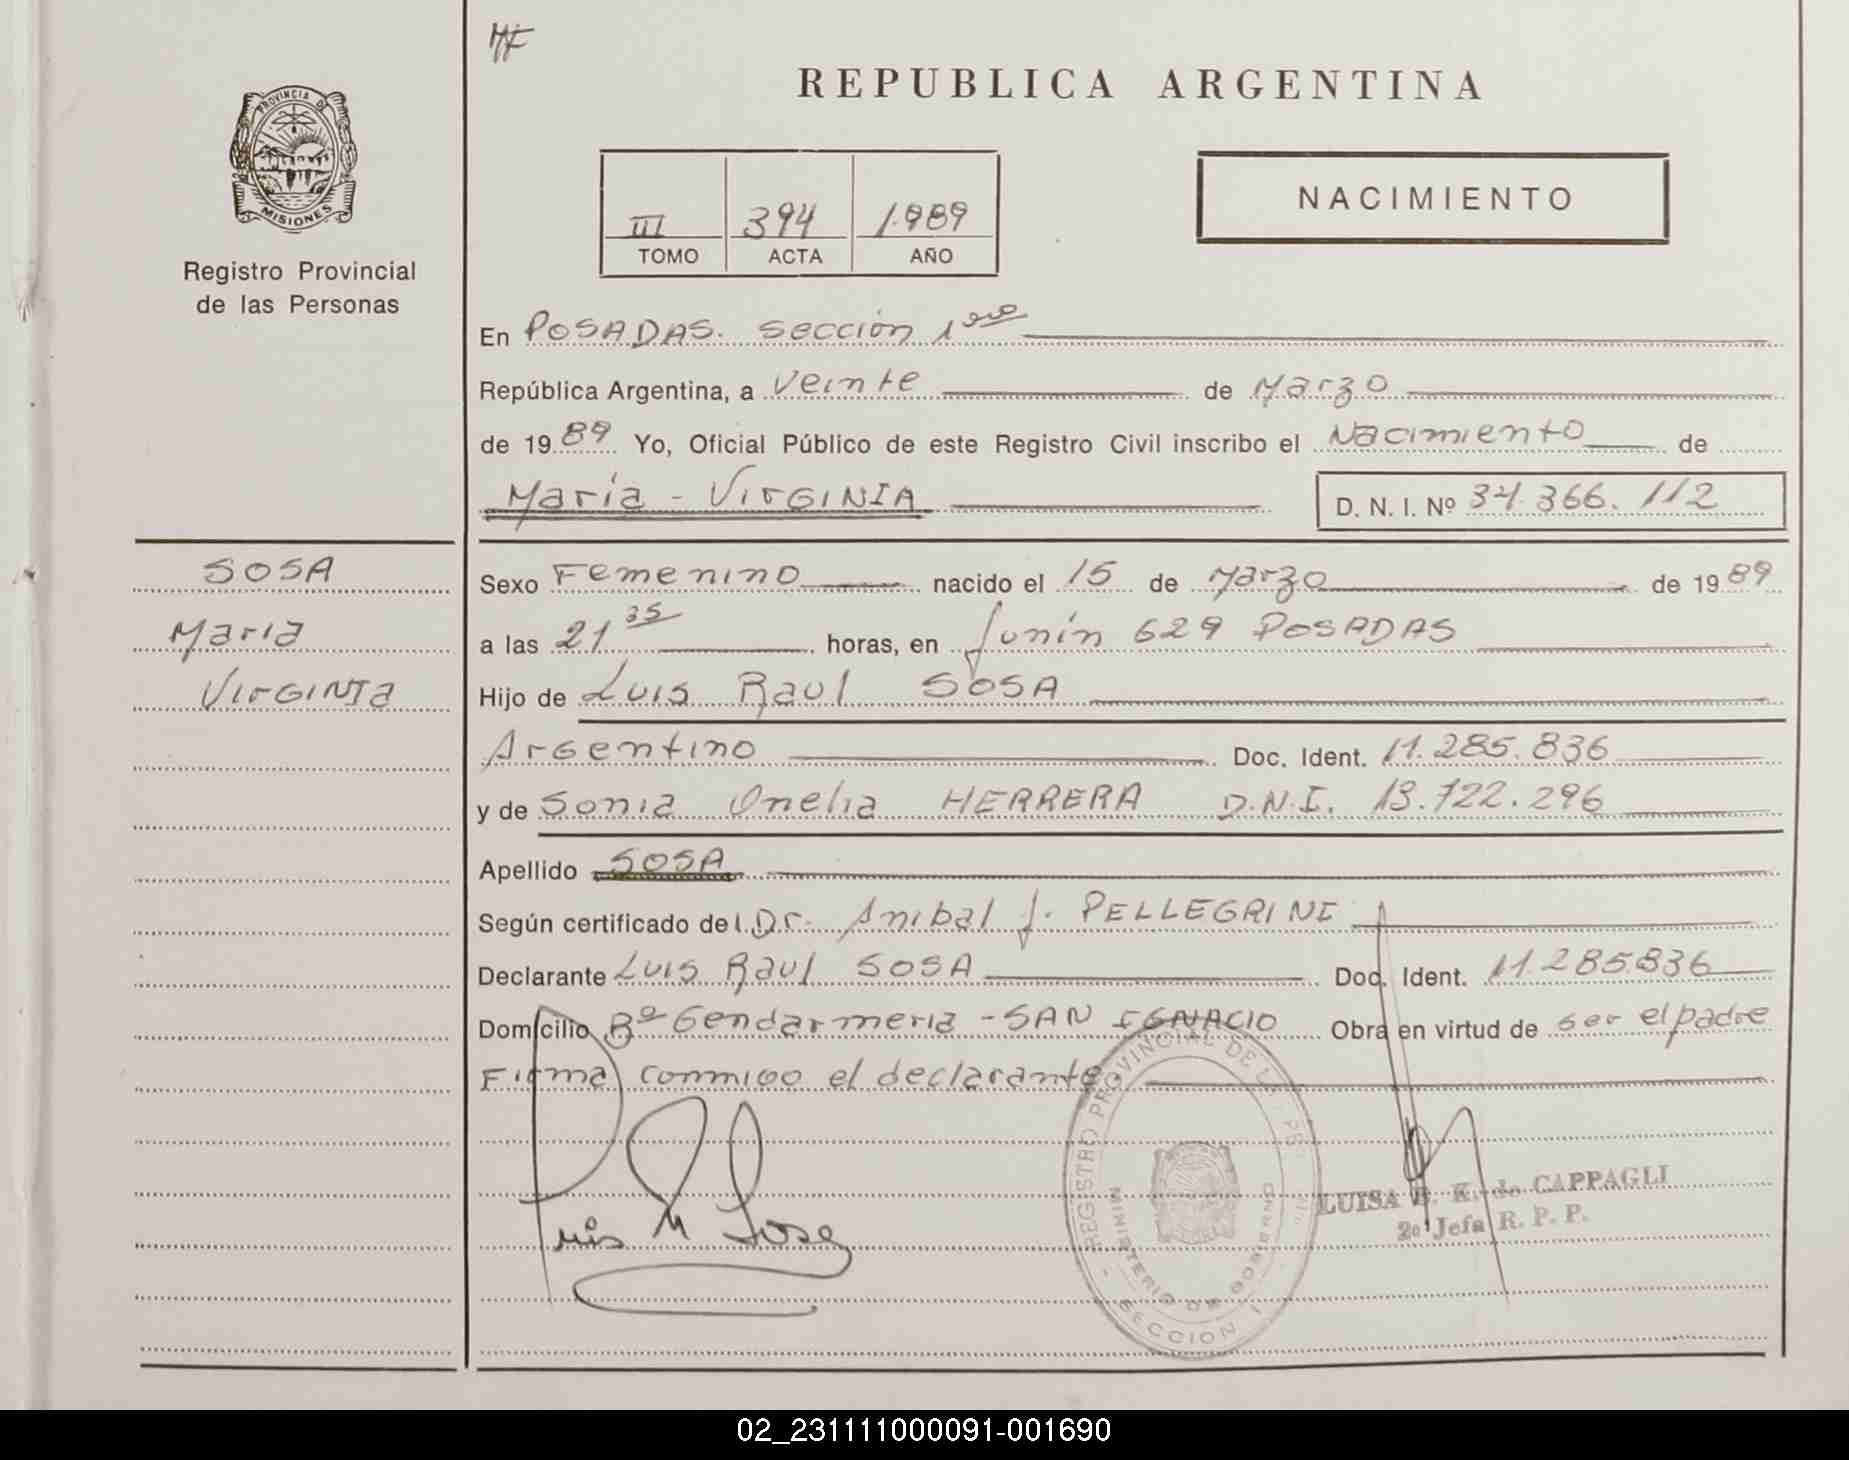 PROVINCIA DE
MISIONES
Registro Provincial
de las Personas
SOSA
Maria
VIRGINIA
REPUBLICA ARGENTINA
III 394 1.989
TOMO ACTA AÑO
NACIMIENTO
En POSADAS. Sección 1era
República Argentina, a Veinte de Marzo
de 1989 Yo, Oficial Público de este Registro Civil inscribo el Nacimiento de
María - VIRGINIA D. N. I. Nº 34.366.112
Sexo Femenino nacido el 15 de Marzo de 1989
a las 21 35 horas, en Junín 629 POSADAS
Hijo de Luis Raul SOSA
Argentino Doc. Ident. 11.285.836
y de Sonia Onelia HERRERA D.N.I. 13.722.296
Apellido SOSA
Según certificado del Dr. Anibal J. PELLEGRINI
Declarante Luis Raul SOSA Doc. Ident. 11.285.836
Domicilio Bº Gendarmeria - SAN IGNACIO Obra en virtud de ser el padre
Firma conmigo el declarante
Luis R Sosa
REGISTRO PROVINCIAL DE
MINISTERIO DE GOBIERNO
SECCION 1
LUISA E. K. de CAPPAGLI
2º Jefa R. P. P.
02_231111000091-001690